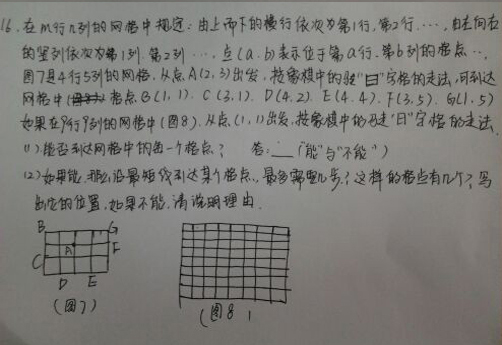 16. 在m行n列的网格中规定：由上而下的横行依次为第1行，第2行…，由左向右
的竖列依次为第1列，第2列…，点(a.b)表示位于第a行、第b列的格点…，
图7是4行5列的网格，从点A(2,3)出发，按象棋中的"日"字格的走法，可到达
网格中格点B(1,1)、C(3,1)、D(4,2)、E(4,4)、F(3,5)、G(1,5)
如果在9行9列的网格中(图8)，从点(1,1)出发，按象棋中的马走"日"字格的走法，
(1)能否到达网格中的每一个格点？ 答：__("能"与"不能")
(2)如果能，那么沿最短线到达某个格点，最多需要几步？这样的格点有几个？写
出它的位置，如果不能，请说明理由.
B G
A F
C
D E
(图7) (图8)